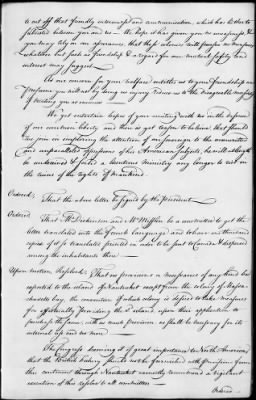 to cut off that friendly intercourse and communication, which has hitherto
subsisted between you and us — We hope it has given you no uneasiness & 
you may rely on our assurances, that these colonies will pursue no measures
whatsoever, but such as friendship & a regard for our mutual safety and
interest may suggest.
As our concern for your welfare entitles us to your friendship, we
presume you will not by doing us injury reduce us to the disagreeable necessity
of treating you as enemies —
We yet entertain hopes of your uniting with us in the defence
of our common liberty, and there is yet reason to believe, that should
we join in imploring the attention of our sovereign to the unmerited
and unparalleled oppressions of his American subjects, he will at length
be undeceived & forbid a licentious ministry any longer to riot in
the ruins of the rights of Mankind.
Ordered, That the above letter be signed by the president
Ordered That Mr Dickinson and Mr Mifflin be a committee to get the
letter translated into the french language and to have one thousand
copies of it so translated printed in order to be sent to Canada & dispersed
among the inhabitants there —
Upon motion, Resolved; That no provisions or necessaries of any kind be
exported to the island of Nantucket except from the colony of Massa-
chusetts bay, the convention of which colony is desired to take measures
for effectually providing the sd island, upon their application to
purchase the same, with as much provision, as shall be necessary for its
internal use and no more —
The Congress deeming it of great importance to North America,
that the British fishery should not be furnished with provisions from
this continent through Nantucket earnestly recommend a vigilant
execution of this resolve to all committees —
Ordered